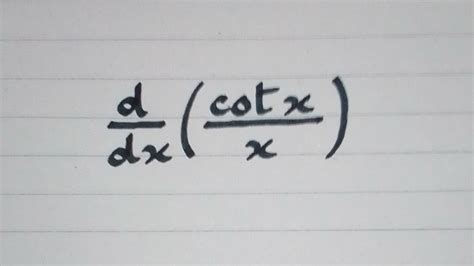 d/dx (cot x / x)